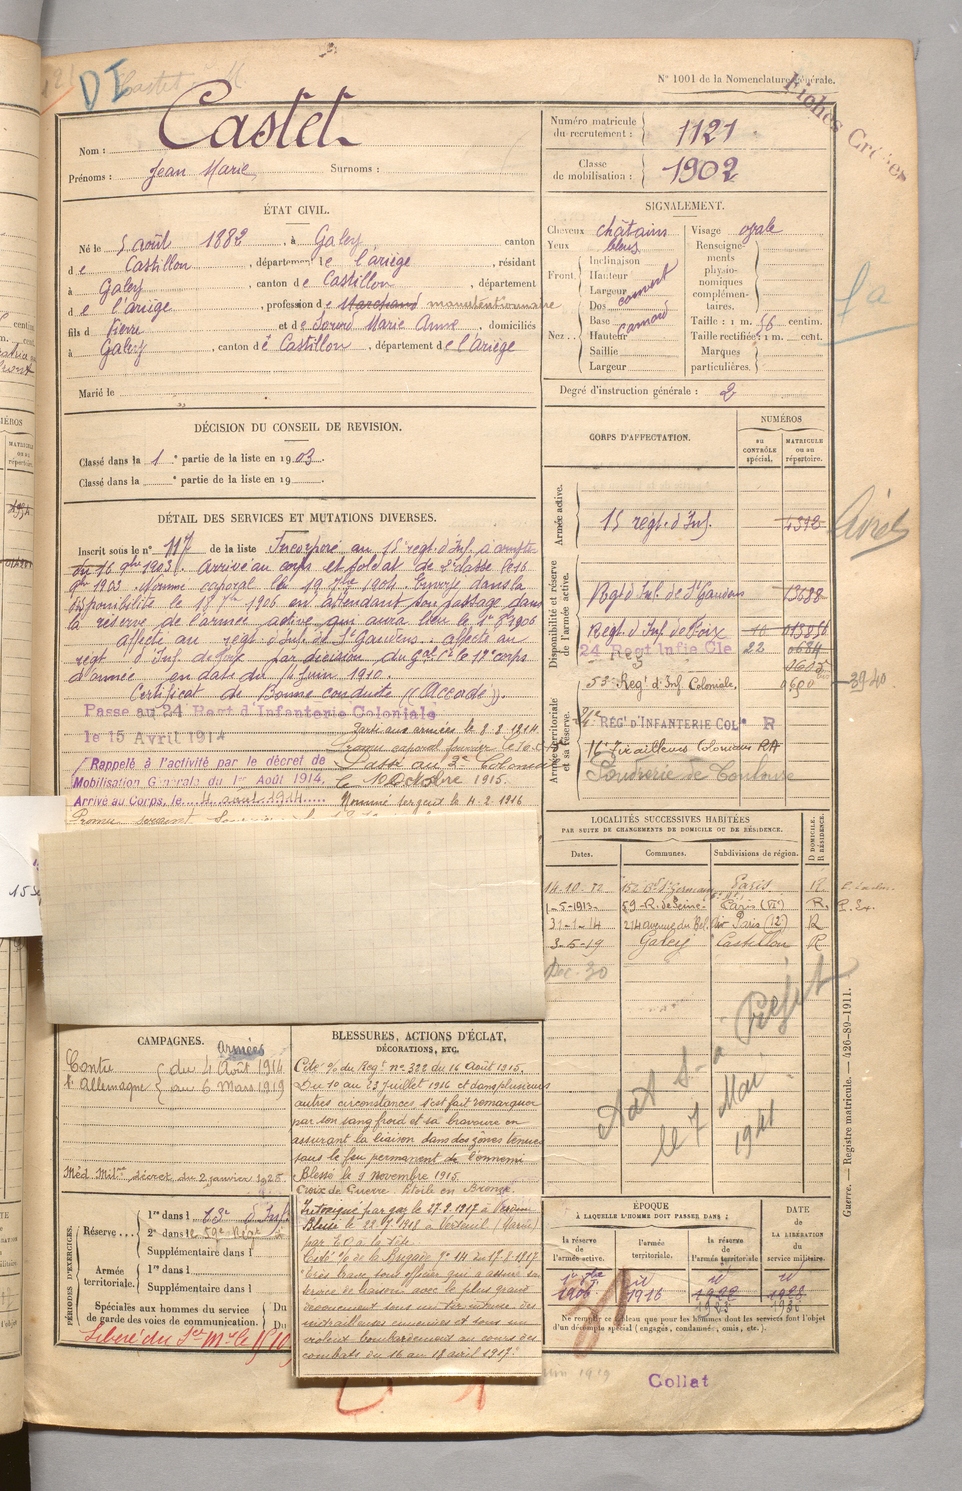 N° 1001 de la Nomenclature générale.
DI
Nom : Castet
Prénoms : Jean Marie Surnoms :
ÉTAT CIVIL.
Né le 5 août 1882, à Galey, canton
de Castillon, département de l'ariège, résidant
à Galey, canton de Castillon, département
de l'ariège, profession de Marchand manutentionnaire
fils de Pierre et de Souré Marie Anne, domiciliés
à Galey, canton de Castillon, département de l'ariège
Marié le
DÉCISION DU CONSEIL DE REVISION.
Classé dans la 1e partie de la liste en 1903.
Classé dans la e partie de la liste en 19
DÉTAIL DES SERVICES ET MUTATIONS DIVERSES.
Inscrit sous le n° 117 de la liste Incorporé au 15e régt d'Inf. à compter
du 16 9bre 1903. Arrivé au corps et soldat de 2e classe le 16
9bre 1903. Nommé caporal le 19 7bre 1904. Envoyé dans la
disponibilité le 18 7bre 1906 en attendant son passage dans
la réserve de l'armée active qui aura lieu le 1er 8bre 1906
Affecté au régt d'Inf. de St Gaudens. Affecté au
régt d'Inf. de Foix par décision du Gal Ct le 17e corps
d'armée en date du 14 Juin 1910.
Certificat de Bonne conduite "(Accordé)".
Passé au 24 Regt d'Infanterie Coloniale
le 15 Avril 1914
Parti aux armées le 8-8-1914.
Promu caporal fourrier le
Rappelé à l'activité par le décret de
Passé au 3e Colonial
Mobilisation Générale du 1er Août 1914.
le 10 Octobre 1915.
Arrivé au Corps, le 4 août 1914
Nommé sergent le 4-2-1916
CAMPAGNES.
Armées
Contre l'Allemagne { du 4 Août 1914
au 6 Mars 1919
Méd. Milre décret du 2 janvier 1925
BLESSURES, ACTIONS D'ÉCLAT,
DÉCORATIONS, ETC.
Cité % du Regt n° 322 du 16 Août 1915.
Du 10 au 23 Juillet 1916 et dans plusieurs
autres circonstances s'est fait remarquer
par son sang froid et sa bravoure en
assurant la liaison dans des zones tenues
sous le feu permanent de l'ennemi
Blessé le 9 Novembre 1915.
Croix de Guerre Etoile en Bronze.
Intoxiqué par gaz le 27.9.1917 à Verdun
Blessé le 22.7.1918 à Verteuil (Marne)
par E.O à la tête.
Cité % de la Brigade n° 14 du 17.8.1917
"très brave sous officier qui a assuré son
service de liaison avec le plus grand
dévouement sous un tir intense des
mitrailleuses ennemies et sous un
violent bombardement au cours des
combats du 16 au 18 avril 1917."
PÉRIODES D'EXERCICES.
Réserve... { 1re dans l
2e dans le 59e Régt
Supplémentaire dans l
Armée territoriale. { 1re dans l
Supplémentaire dans l
Spéciales aux hommes du service
de garde des voies de communication. { Du
Du
Numéro matricule
du recrutement : 1121
Classe
de mobilisation : 1902
SIGNALEMENT.
Cheveux châtains
Yeux bleus
Front. { Inclinaison
Hauteur
Largeur
Nez.. { Dos couvert
Base camard
Hauteur
Saillie
Largeur
Visage ovale
Renseignements physionomiques complémentaires.
Taille : 1 m. 56 centim.
Taille rectifiée : 1 m. cent.
Marques
particulières.
Degré d'instruction générale : 2
CORPS D'AFFECTATION.
NUMÉROS
au CONTRÔLE spécial.
MATRICULE ou au répertoire.
Armée active.
15 régt d'Inf. 4392
Disponibilité et réserve de l'armée active.
Régt d'Inf. de St Gaudens 13688
Régt d'Inf. de Foix
24 Regt Infie Cle 22
53e Régt d'Inf. Coloniale. 3940
Armée territoriale et sa réserve.
RÉGt D'INFANTERIE COLe R
16e Tirailleurs Coloniaux RA
Poudrerie de Toulouse
LOCALITÉS SUCCESSIVES HABITÉES
PAR SUITE DE CHANGEMENTS DE DOMICILE OU DE RÉSIDENCE.
Dates. Communes. Subdivisions de région. D DOMICILE. R RÉSIDENCE.
14-10-12 152 Bd St Germain Paris R
1-5-1913 59 R. de Seine Paris (VI) R.
31-1-14 214 avenue du Bel Air Paris (12) R
3-5-19 Galey Castillon R
Dec. 30
le 7 Mai
1941
ÉPOQUE
À LAQUELLE L'HOMME DOIT PASSER DANS :
la réserve de l'armée active.
l'armée territoriale.
la réserve de l'armée territoriale
DATE
DE
LA LIBÉRATION
DU
service militaire.
1906 1916 1922 1928
Ne remplir ce tableau que pour les hommes dont les services font l'objet
d'un décompte spécial (engagés, condamnés, omis, etc.).
Guerre. — Registre matricule. — 426-89-1911.
Collat